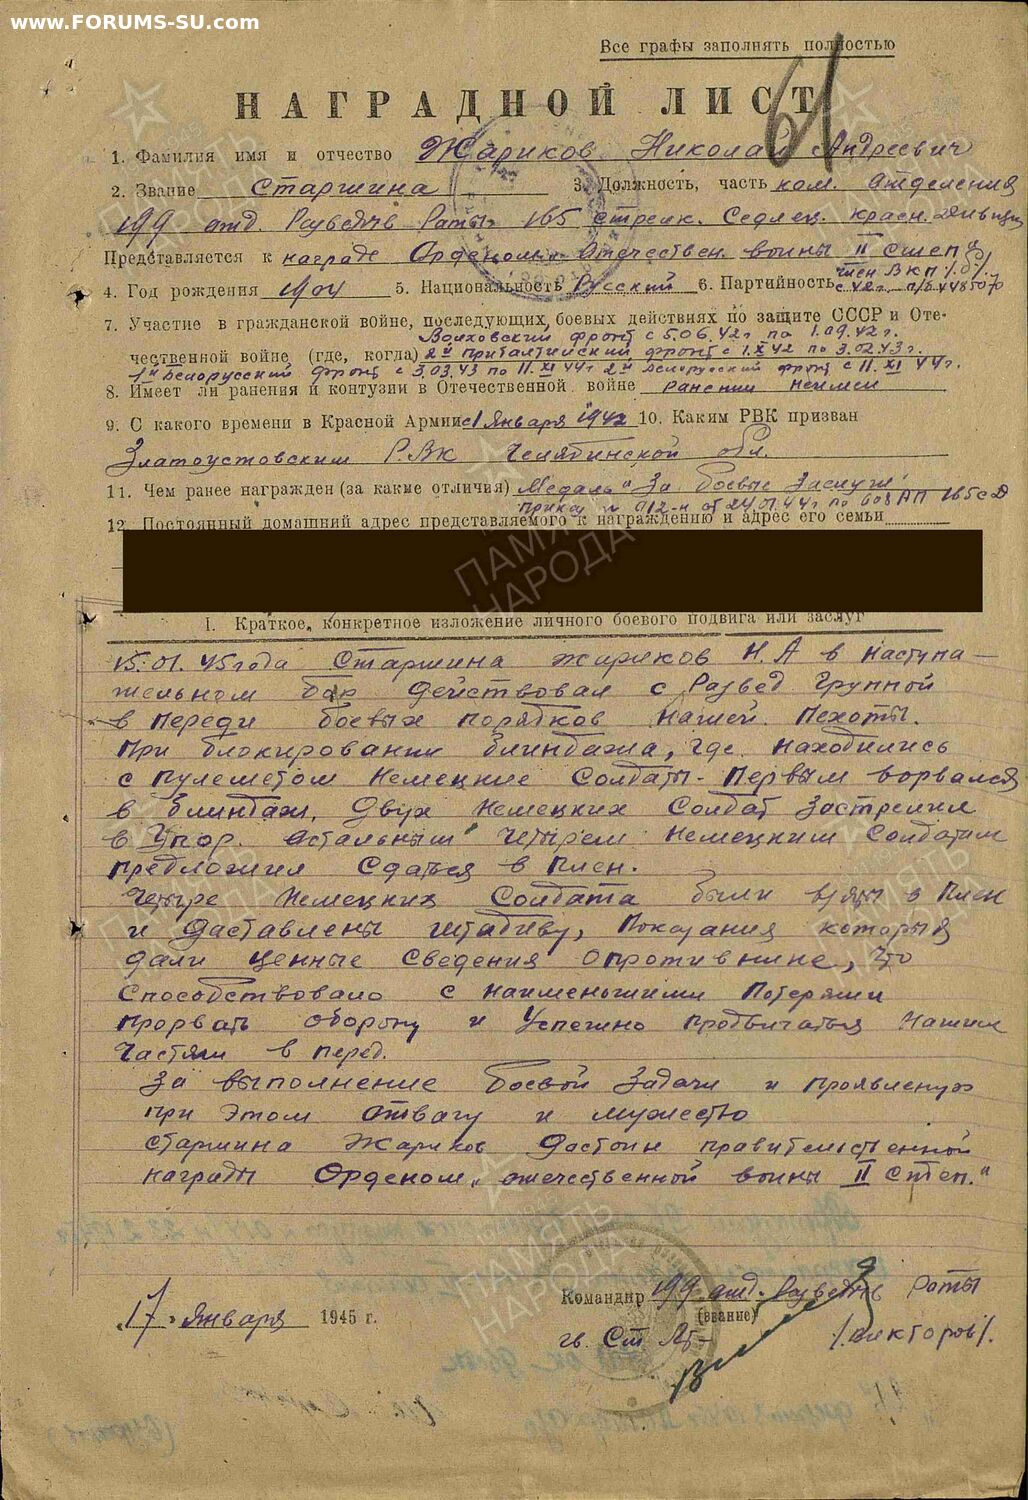 www.FORUMS-SU.com
Все графы заполнять полностью
61
НАГРАДНОЙ ЛИСТ
1. Фамилия имя и отчество Жариков Николай Андреевич
2. Звание Старшина 3. Должность, часть ком. отделения
199 отд. Разведыв Роты 165 стрелк. Седлец. красн. дивизии
Представляется к награде Орденом Отечествен. войны II степ
4. Год рождения 1904 5. Национальность Русский 6. Партийность член ВКП/б/
с 42г. п/б 4485070
7. Участие в гражданской войне, последующих боевых действиях по защите СССР и Оте-
Волховский фронт с 5.06.42г. по 1.09.42г.
чественной войне (где, когда) 2й прибалтийский фронт с 1.X 42 по 3.02.43г.
1й Белорусский фронт с 3.03.43 по 11.XI 44г 2й Белорусский фронт с 11.XI 44г.
8. Имеет ли ранения и контузии в Отечественной войне ранений неимеи
9. С какого времени в Красной Армии с 1 января 1942 10. Каким РВК призван
Златоустовским Р.ВК Челябинской обл.
11. Чем ранее награжден (за какие отличия) Медаль "За боевые Заслуги"
приказ № 012-н от 24.01.44г по 608 АП 165 сД
12. Постоянный домашний адрес представляемого к награждению и адрес его семьи
ПАМЯТЬ НАРОДА
I. Краткое, конкретное изложение личного боевого подвига или заслуг
15.01.45 года Старшина Жариков Н.А в наступа-
тельном бою действовал с Развед Группой
в переди боевых порядков нашей Пехоты.
При блокировании блиндажа, где находились
с пулеметом немецкие Солдаты - Первым ворвался
в блиндаж, двух немецких Солдат застрелил
в Упор. остальным четырем немецким Солдатам
предложил сдаться в плен.
Четыре немецких Солдата были взяты в Плен
и доставлены штабиву, Показания которыя
дали ценные сведения опротивнике, что
Способствовало с наименьшими Потерями
прорвать оборону и успешно продвигаться нашим
частям в перед.
За выполнение боевой задачи и проявленую
при этом отвагу и мужество
старшина Жариков Достоин правительственной
награды Орденом "отечественной войны II степ."
"17" января 1945 г.
Командир 199 отд. Разведыв Роты
(звание)
гв. Ст Лт- /Викторов/.